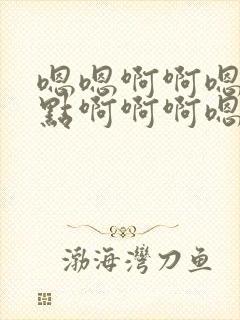 嗯嗯啊啊嗯
點啊啊啊嗯
渤海灣刀鱼